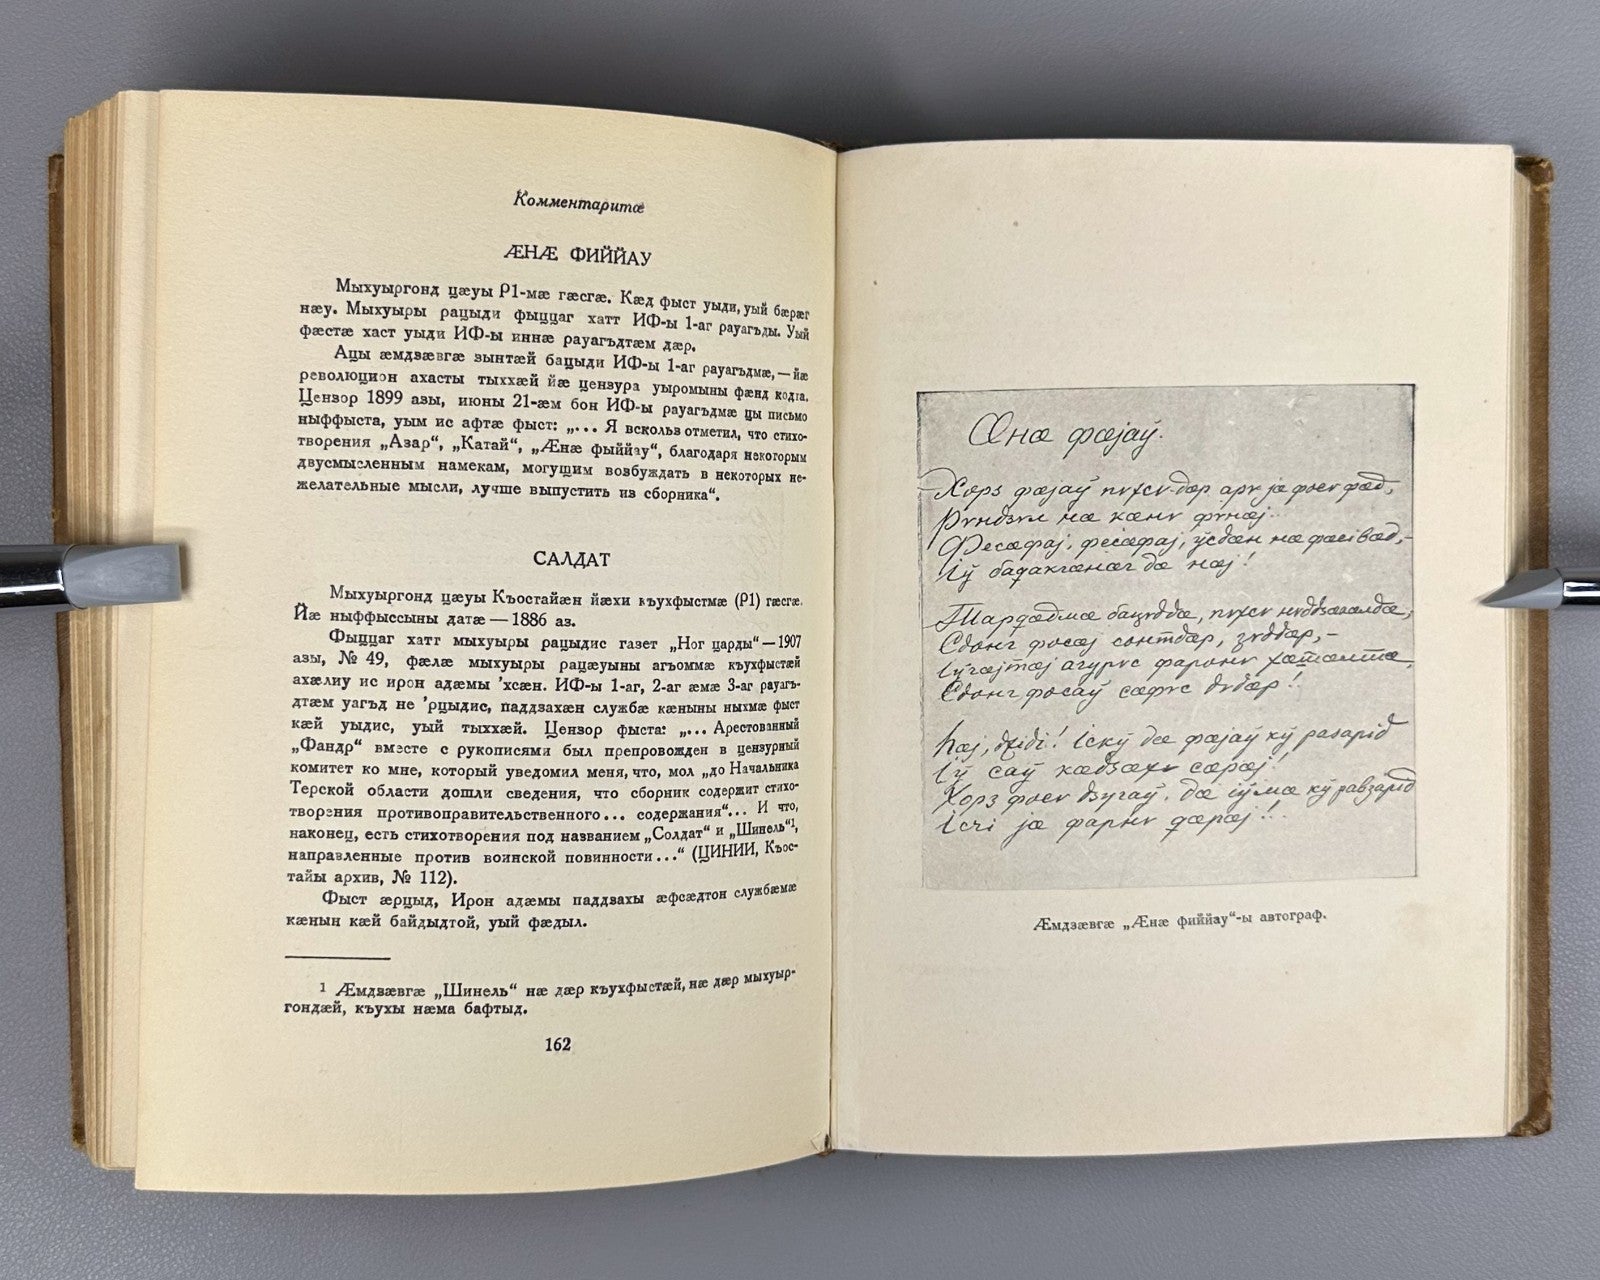 Комментаритæ
ÆНÆ ФИЙЙАУ
Мыхуыргонд цæуы Р1-мæ гæсгæ. Кæд фыст уыди, уый бæрæг
нæу. Мыхуыры рацыди фыццаг хатт ИФ-ы 1-аг рауагъды. Уый
фæстæ хаст уыди ИФ-ы иннæ рауагъдтæм дæр.
Ацы æмдзæвгæ зынтæй бацыди ИФ-ы 1-аг рауагъдмæ, — йæ
революцион ахасты тыххæй йæ цензура уыромыны фæнд кодта.
Цензор 1899 азы, июны 21-æм бон ИФ-ы рауагъдмæ цы письмо
ныффыста, уым ис афтæ фыст: „... Я вскользь отметил, что стихо-
творения „Азар“, „Катай“, „Æнæ фыййау“, благодаря некоторым
двусмысленным намекам, могущим возбуждать в некоторых не-
желательные мысли, лучше выпустить из сборника“.
САЛДАТ
Мыхуыргонд цæуы Къостайæн йæхи къухфыстмæ (Р1) гæсгæ.
Йæ ныффыссыны датæ — 1886 аз.
Фыццаг хатт мыхуыры рацыдис газет „Ног царды“ — 1907
азы, № 49, фæлæ мыхуыры рацæуыны агъоммæ къухфыстæй
ахæлиу ис ирон адæмы ’хсæн. ИФ-ы 1-аг, 2-аг æмæ 3-аг рауагъ-
дтæм уагъд не ’рцыдис, паддзахæн службæ кæныны ныхмæ фыст
кæй уыдис, уый тыххæй. Цензор фыста: „... Арестованный
„Фандр“ вместе с рукописями был препровожден в цензурный
комитет ко мне, который уведомил меня, что, мол „до Начальника
Терской области дошли сведения, что сборник содержит стихо-
творения противоправительственного... содержания“... И что,
наконец, есть стихотворения под названием „Солдат“ и „Шинель“¹,
направленные против воинской повинности...“ (ЦИНИИ, Къос-
тайы архив, № 112).
Фыст æрцыд, Ирон адæмы паддзахы æфсæдтон службæмæ
кæнын кæй байдыдтой, уый фæдыл.
1 Æмдзæвгæ „Шинель“ нæ дæр къухфыстæй, нæ дæр мыхуыр-
гондæй, къухы нæма бафтыд.
162
Æнæ фæјаў.
Хорз фæјаў
нæ кæнν
Фесæфај, фесæфај, ўсдæн нæ
Іў дæ нæј!
Сдонг фосæј сонтдæр,
Сдонг фосаў сæфνс дνдæр!
Һæј, Іскў дæ фæјаў кў разарід
Іў саў кæдзæхν сæрæј!
Хорз фосν дзугаў, дæ іўмæ кў равзарід
Ісчі јæ фарнν
Æмдзæвгæ „Æнæ фиййау“-ы автограф.